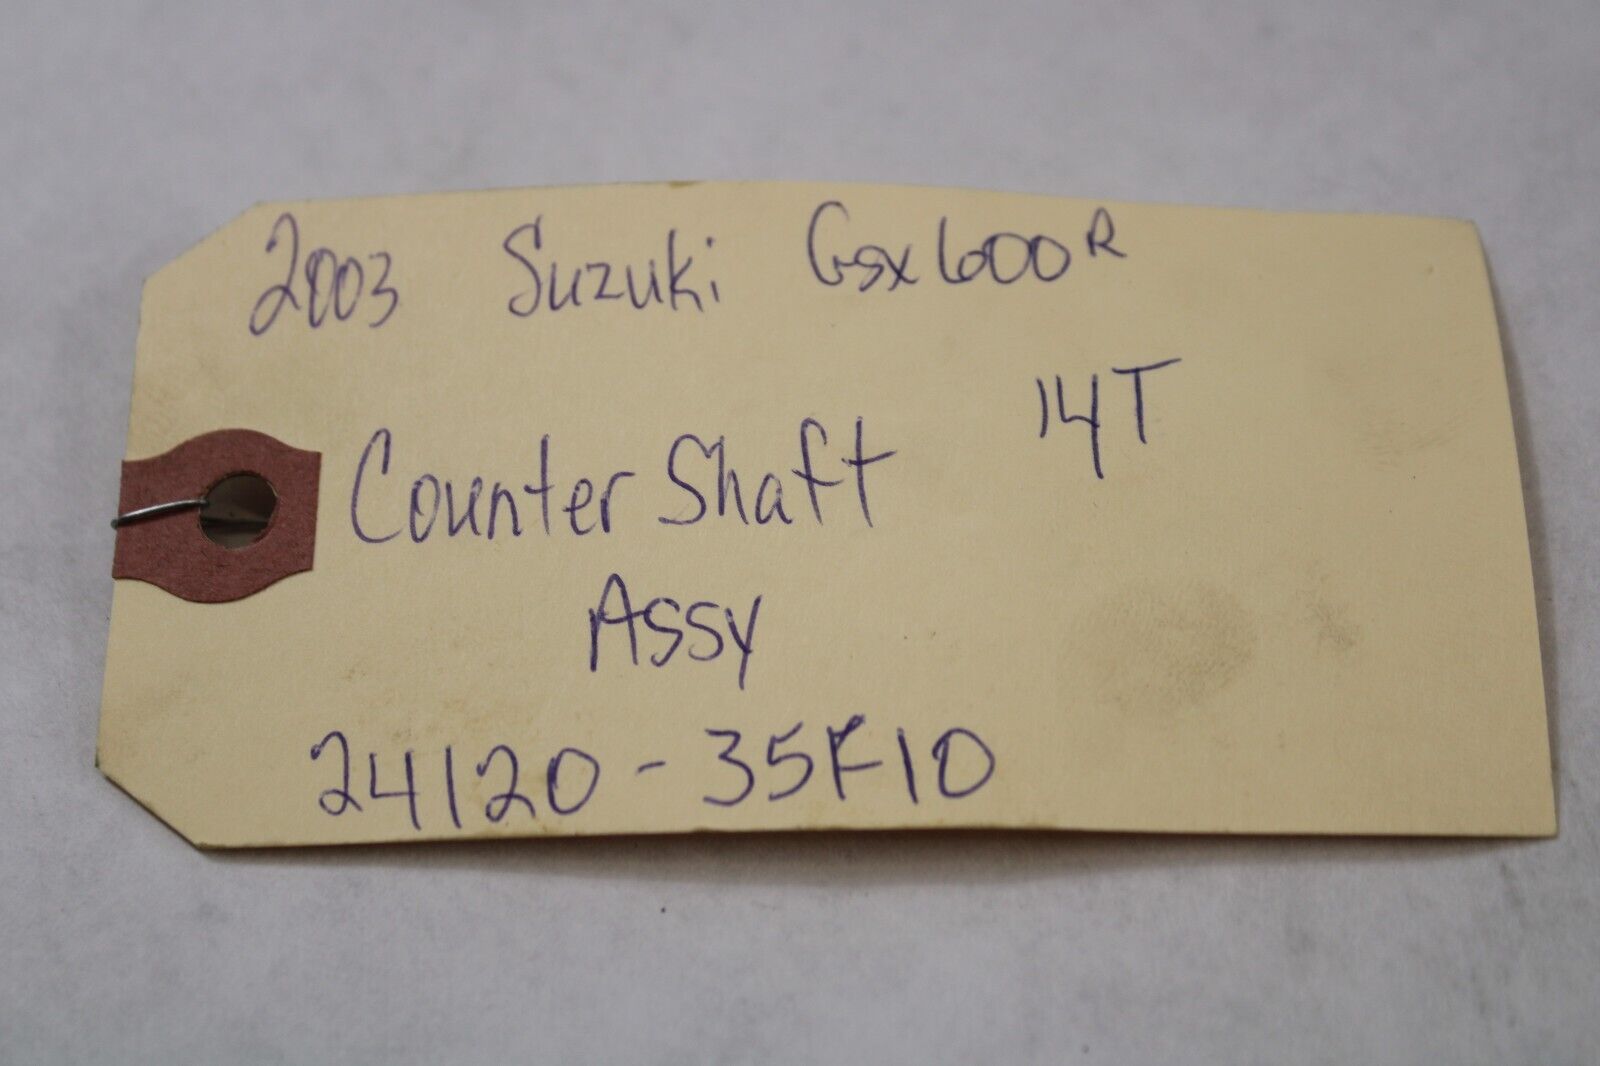 2003 Suzuki Gsx600R
14T
Counter Shaft
Assy
24120-35F10